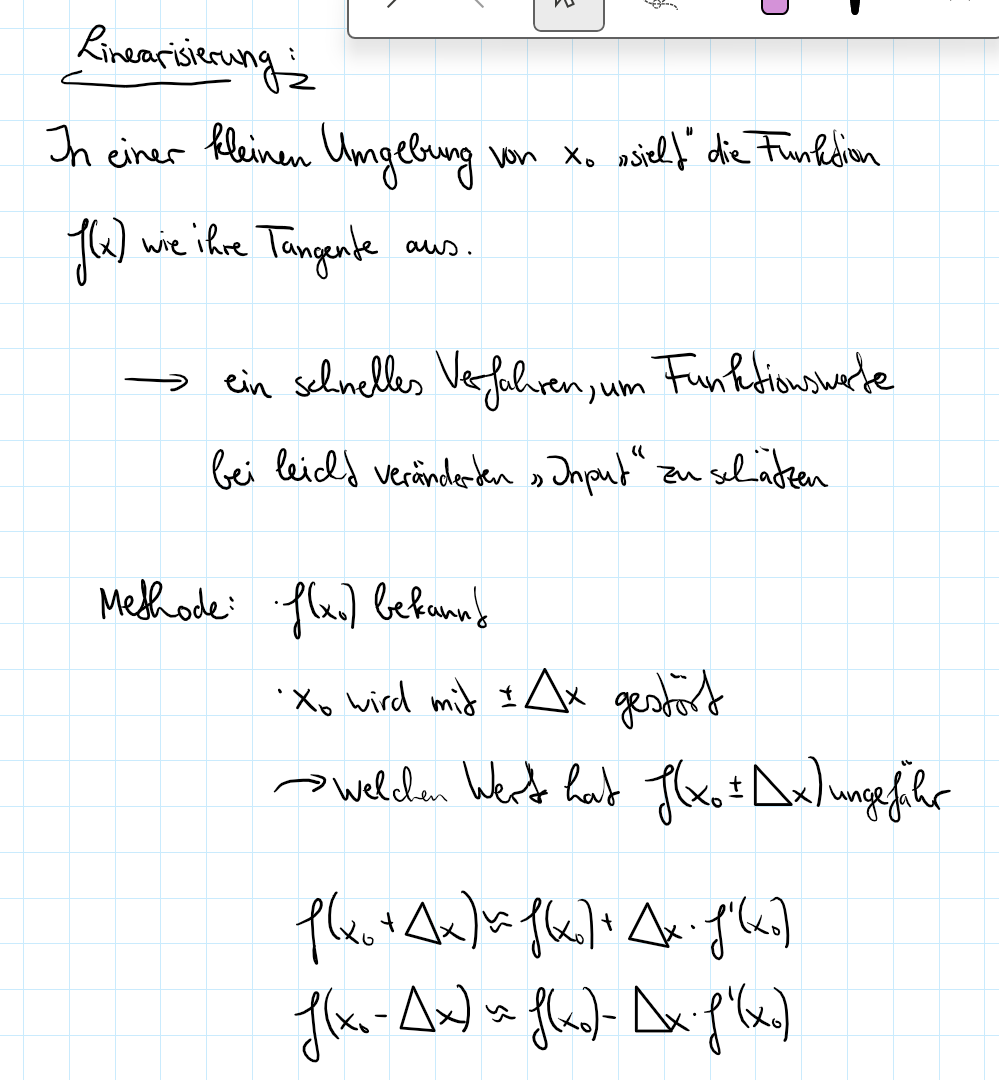 Linearisierung:
In einer kleinen Umgebung von x₀ „sieht" die Funktion
f(x) wie ihre Tangente aus.
→ ein schnelles Verfahren, um Funktionswerte
bei leicht veränderten „Input“ zu schätzen
Methode: · f(x₀) bekannt
· x₀ wird mit ± Δx gestört
→ welchen Wert hat f(x₀ ± Δx) ungefähr
f(x₀ + Δx) ≈ f(x₀) + Δx · f'(x₀)
f(x₀ - Δx) ≈ f(x₀) - Δx · f'(x₀)